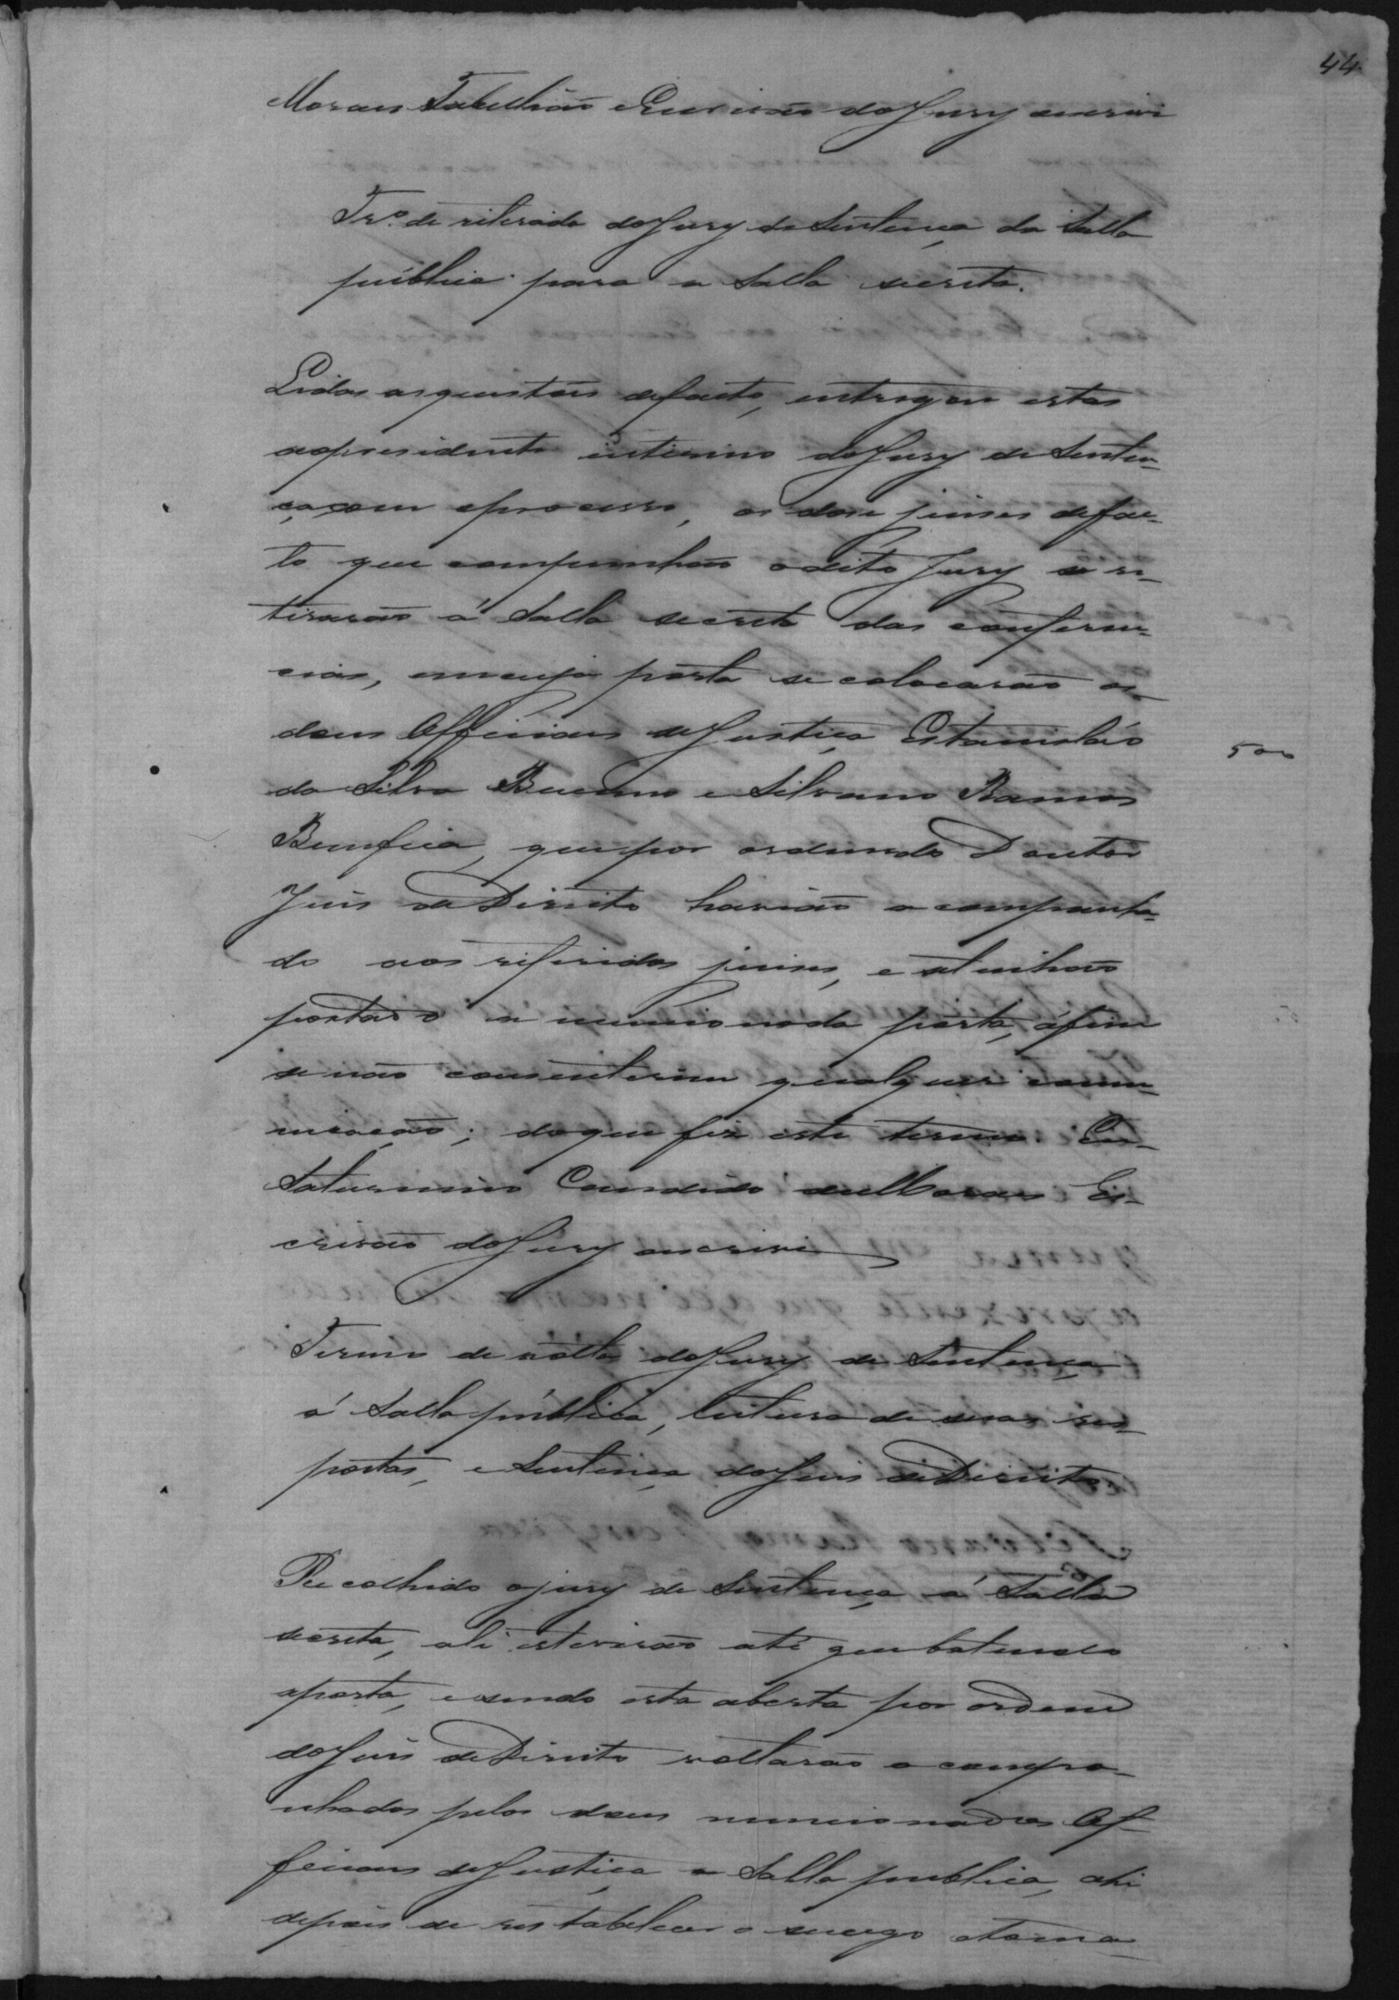 44
Moraes Tabellião e Escrivão do Jury o escrivi
Tr.º de riterada do Jury de Sentença da Salla
publica para a Salla secreta.
Lidas as questões de facto, entregou estas
ao presidente interino do Jury de Senten-
ça com o processo, os dose juises de fac-
to que compunhão o dito Jury se re-
tirarão á Salla secreta das conferen-
cias, em cuja porta se colocarão os
dous Officiaes de Justiça Estanisláo
da Silva Bueno e Silvano Ramos
Bemfica, que por ordem do Doutor
Juis de Direito havião acompanha-
do aos referidos juises, e se tinhão
postado a mencionada porta, áfim
de não consenterem qualquer comu-
nicação; do que fiz este termo. Eu
Saturnino Candido de Moraes Es-
crivão do Jury o escrivi
Termo de volta do Jury de Sentença
á Salla pública, leitura de suas res-
postas, e Sentença do Juis de Direito
Recolhido o jury de Sentença á Salla
secreta, ali estiverão até que batendo
a porta, e sendo esta aberta por ordem
do Juis de Direito voltarão acompa-
nhados pelos dous mencionados Of-
ficiaes de Justiça a Salla publica, ahi
depois de restabelecer o socego torna
500